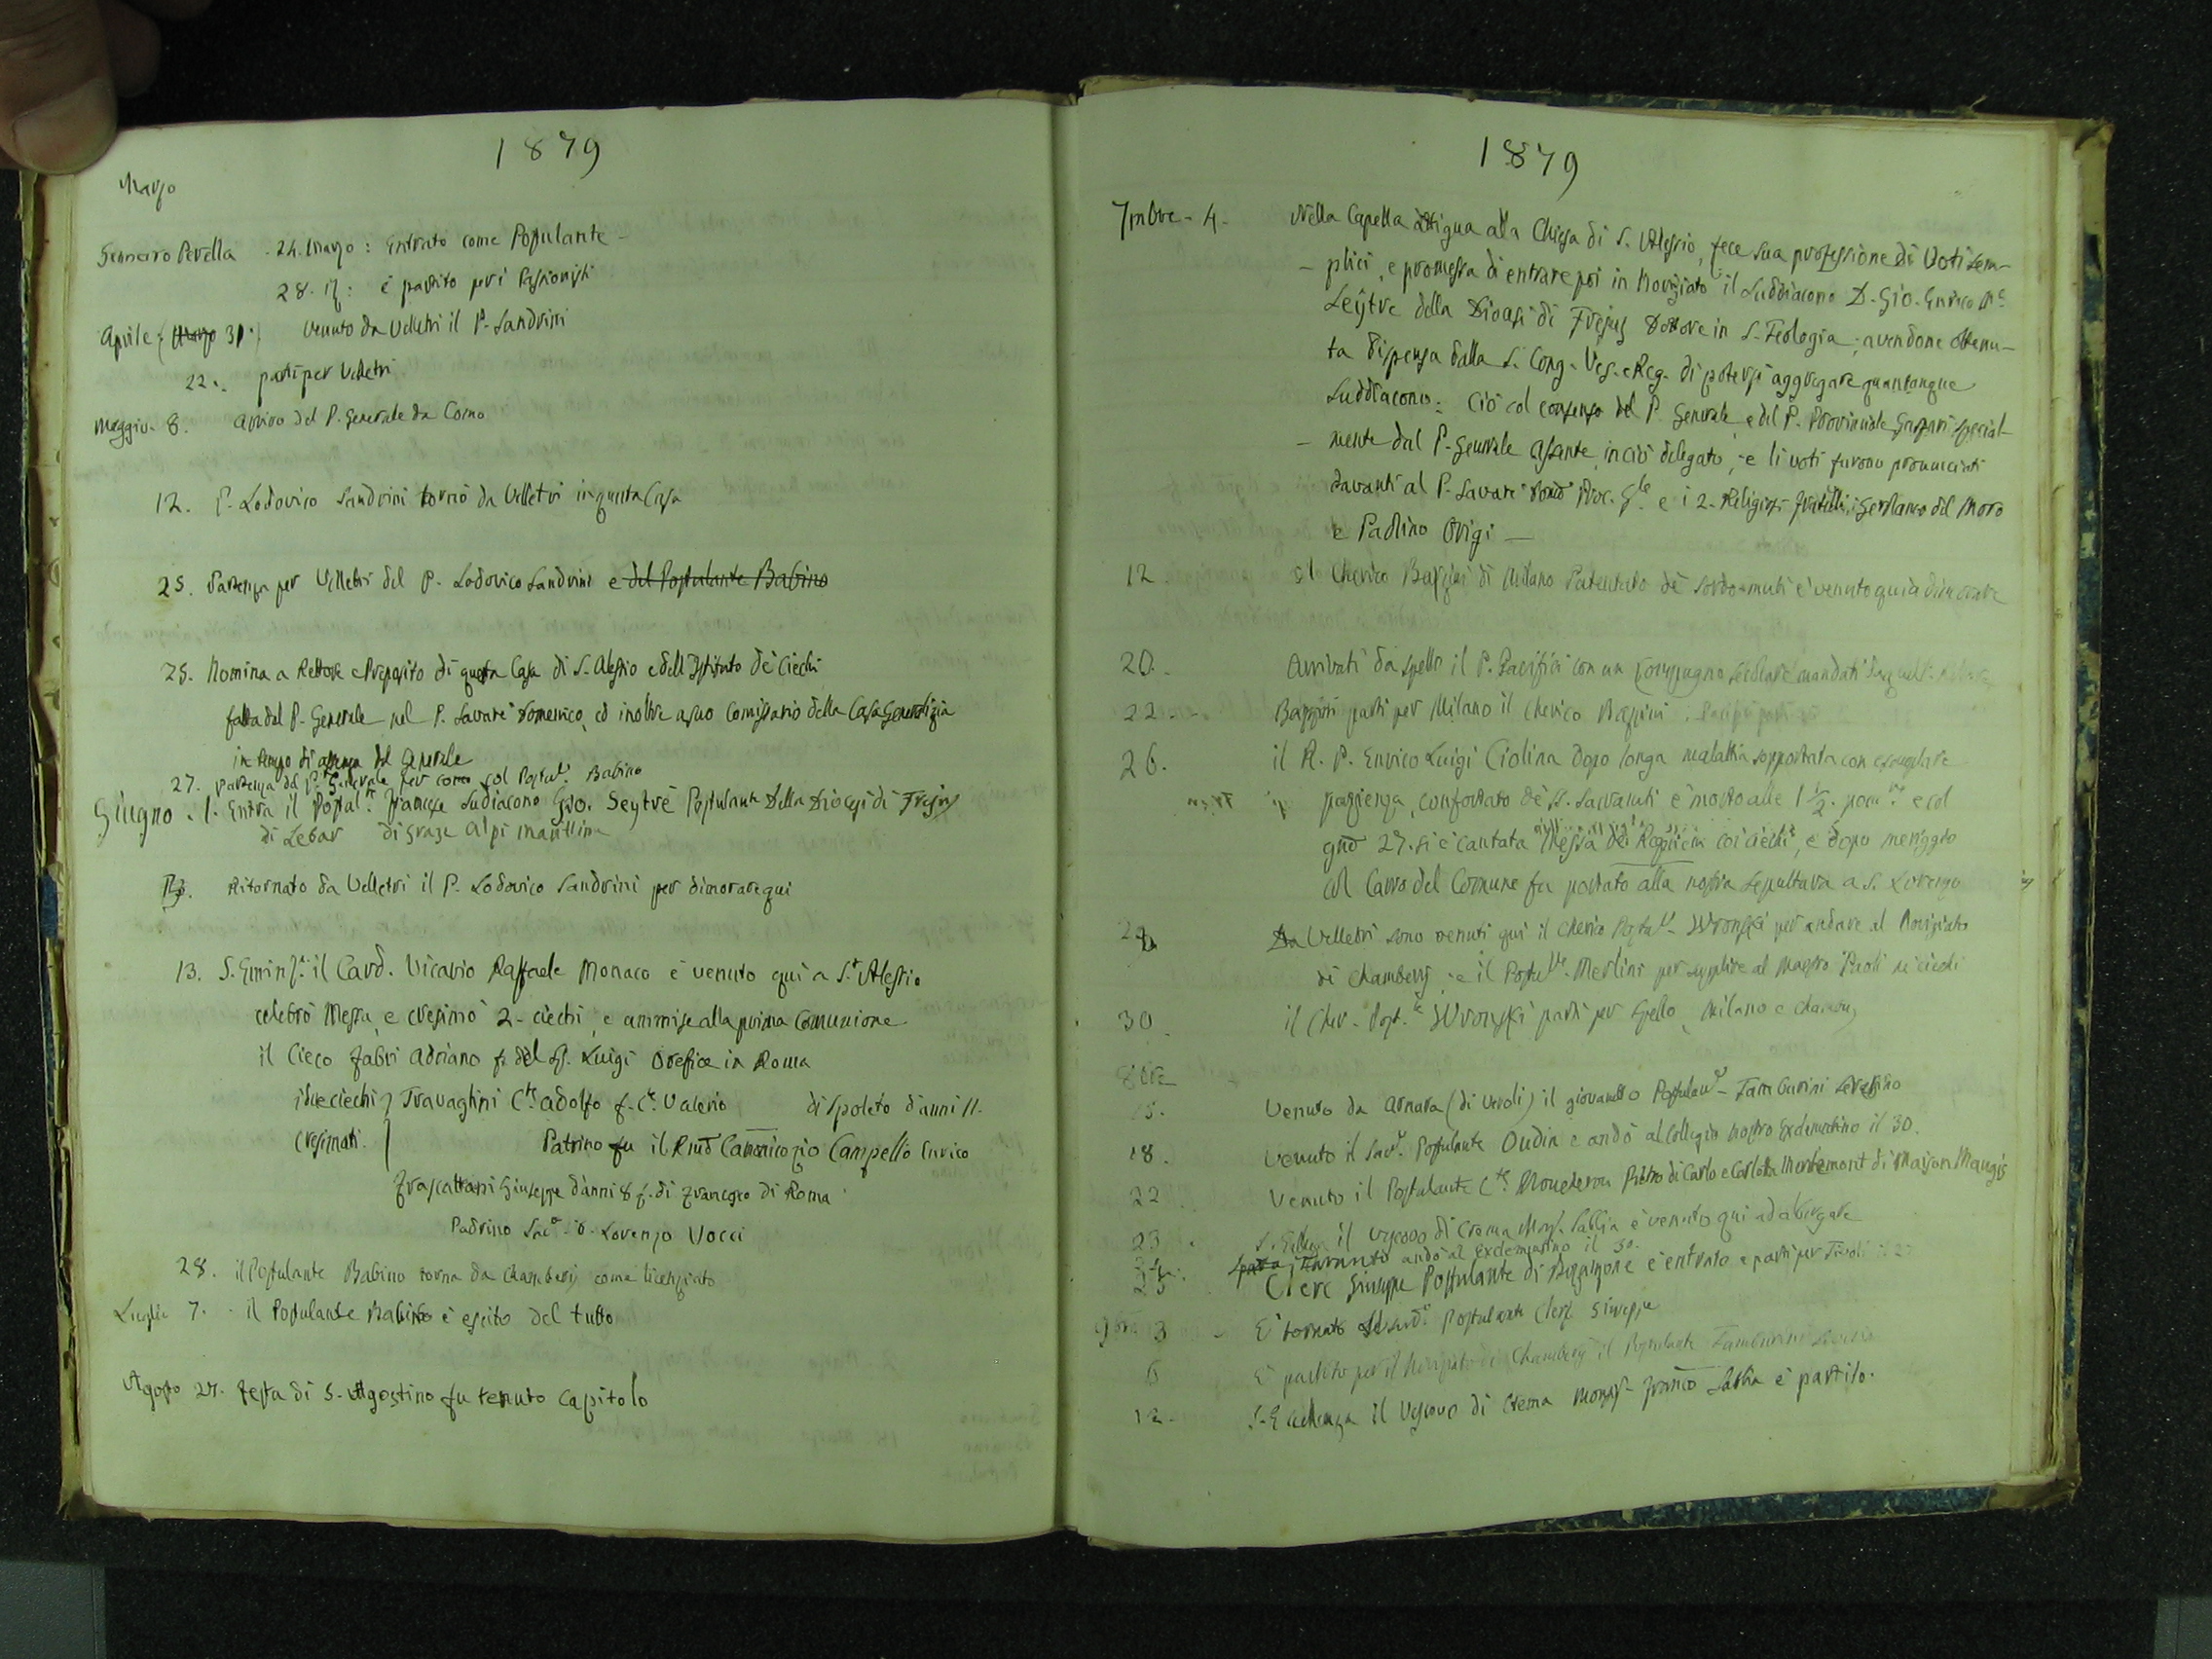 1879
Marzo
Gennaro Perella . 24. Marzo : Entrato come Postulante -
28. : è partito per i Passionisti
Aprile (Marzo 31.) Venuto da Velletri il P. Sandrini
22. partì per Velletri
Maggio. 8. Arrivo del P. Generale da Como
12. P. Lodovico Sandrini tornò da Velletri in questa Casa
25. Partenza per Velletri del P. Lodovico Sandrini e del Postulante Babino
25. Nomina a Rettore e Preposito di questa Casa di S. Alessio e dell'Istituto de' Ciechi
fatta dal P. Generale nel P. Savarè Domenico, ed inoltre a suo Comissario della Casa Generalizia
in tempo di assenza del Generale
27. partenza del P. Generale per Como col Postul. Babino
Giugno . 1. Entra il Postul.te Francese Sudiacono Gio. Seytre Postulante Della Diocesi di Frejus
di Lebar di Grasse Alpi Marittime
13. Ritornato da Velletri il P. Lodovico Sandrini per dimorare qui
13. S. Eminza. il Card. Vicario Raffaele Monaco è venuto qui a S.t Alessio
celebrò Messa, e cresimò 2. ciechi, e ammise alla prima Comunione
il Cieco Fabri Adriano f. del Sr. Luigi Orefice in Roma
i due ciechi Travaglini C.te Adolfo f. C.te Valerio di Spoleto d'anni 11.
cresimati. Patrino fu il Rmo Canonico Campello Enrico
Frascattani Giuseppe d'anni 8 f. di Francesco di Roma
Padrino Sac.e D. Lorenzo Vocci
28. il Postulante Babino torna da Chambery come licenziato
Luglio 7. - il Postulante Babino è escito del tutto
Agosto 27. festa di S. Agostino fu tenuto Capitolo
1879
7mbre - 4. Nella Capella attigua alla Chiesa di S. Alessio, fece sua professione di Voti sem-
- plici, e promessa di entrare poi in Noviziato il Suddiacono D. Gio. Enrico
Seytre della Diocesi di Frejus Dottore in S. Teologia; avendone ottenu-
ta dispensa dalla S. Cong. Ves. e Reg. di potersi aggregare quantunque
Suddiacono: Ciò col consenso del P. Generale, e del P. Provinciale Gaspari special-
- mente dal P. Generale assente, in ciò delegato; e li voti furono pronunciati
davanti al P. Savarè Proc. G.le e i 2. Religiosi Fratelli, Girolamo del Moro
e Paolino Origi -
12. il Cherico di Milano Patentato de' sordo-muti è venuto qui a dimorare
20. Arrivati da Spello il P. Pacifici con un compagno secolare mandati
22. partì per Milano il Cherico
26. il R. P. Enrico Luigi Ciolina dopo longa malattia sopportata con esemplare
pazienza, confortato de' SS. Sacramenti è morto alle 1 1/2. pom. e col
27. si è cantata Messa de Requiem coi ciechi, e dopo meriggio
col Carro del Comune fu portato alla nostra sepultura a S. Lorenzo
Da Velletri sono venuti qui il Cherico Post. Wronski per andare al Noviziato
di Chambery; e il Postul. Merlini per supplire al Maestro Paoli ne' ciechi
30. il Cher. Post.te Wronski partì per Spello, Milano e Chambery
8bre
15. Venuto da Arnara (di Veroli) il giovanetto Postulan. Tamburini
18. Venuto il Sac. Postulante Oudin e andò al Collegio nostro Exclementino il 30.
22 Venuto il Postulante C.te Pietro di Carlo e Carlotta di Maison Maugis
23 . S. il Vescovo di Crema Mons. Sabbia è venuto qui ad albergare
24. Taranto andò al Exclementino il 30.
25 . Clerc Giuseppe Postulante di è entrato e partì per Tivoli
9bre 3 - È tornato Postulante Clerc Giuseppe
6 È partito per il Noviziato di Chambery il Postulante Tamburini
12. S. Eccellenza il Vescovo di Crema Monsr. Franco Sabbia è partito.